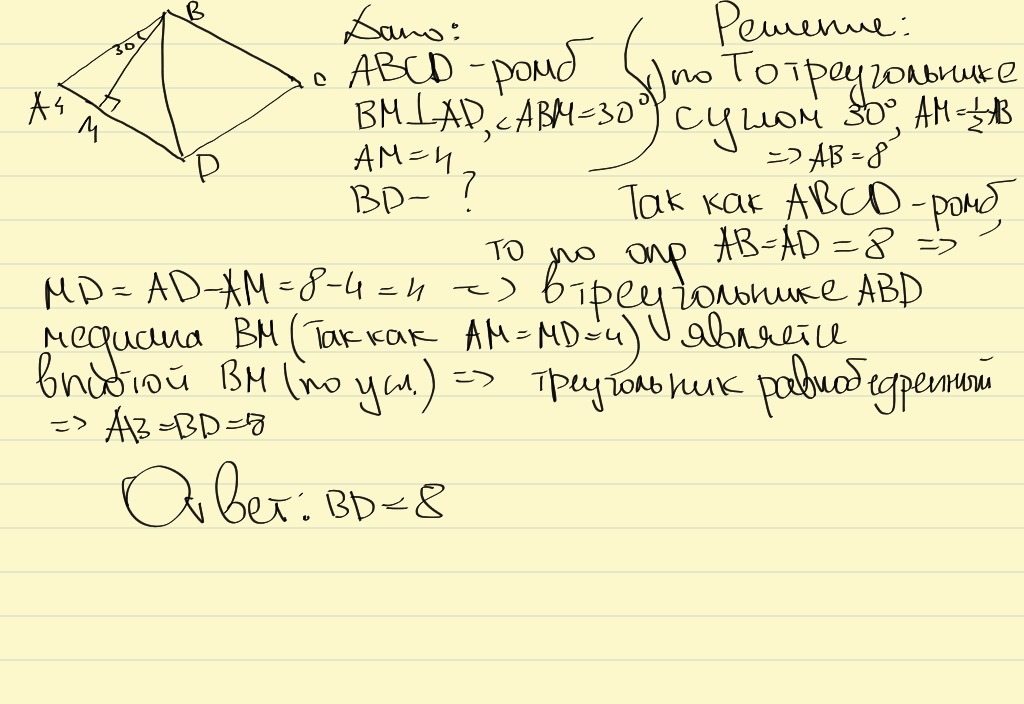 B
30°
A 4
M
D
C
Дано:
ABCD - ромб
BM⊥AD, ∠ABM=30°
AM=4
BD- ?
Решение:
1) по Т о треугольнике
с углом 30°, AM=1/2AB
=> AB=8
Так как ABCD - ромб,
то по опр AB=AD=8 =>
MD= AD-AM=8-4=4 => в треугольнике ABD
медиана BM (Так как AM=MD=4) является
высотой BM (по усл.) => треугольник равнобедренный
=> AB=BD=8
Ответ: BD=8